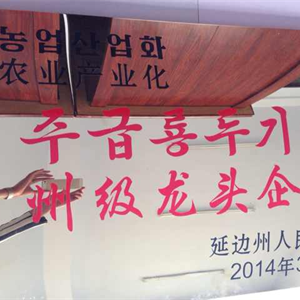 농업산업화
农业产业化
주급룡두기
州级龙头企
延边州人民
2014年3